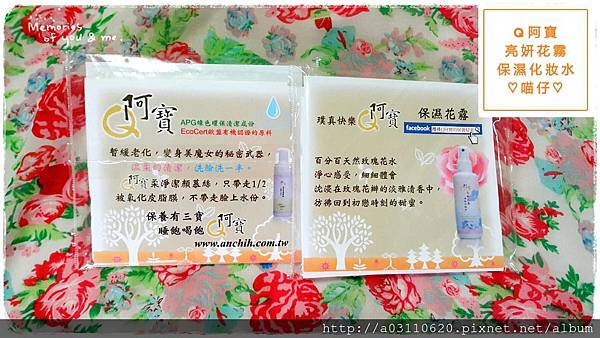 Memories
of you & me.
Q阿寶
亮妍花霧
保濕化妝水
♡喵仔♡
Q阿寶
APG綠色環保清潔成份
EcoCert歐盟有機認證的原料
暫緩老化，變身美魔女的秘密武器，
溫柔的清潔，洗臉洗一半。
Q阿寶柔淨潔顏慕絲，只帶走1/2
被氧化皮脂膜，不帶走臉上水份。
保養有三寶
睡飽喝飽Q阿寶
www.anchih.com.tw
璞真快樂Q阿寶 保濕花霧
facebook
百分百天然玫瑰花水
淨心感受，細細體會
沈浸在玫瑰花瓣的淡雅清香中，
彷彿回到初戀時刻的甜蜜。
http://a03110620.pixnet.net/album